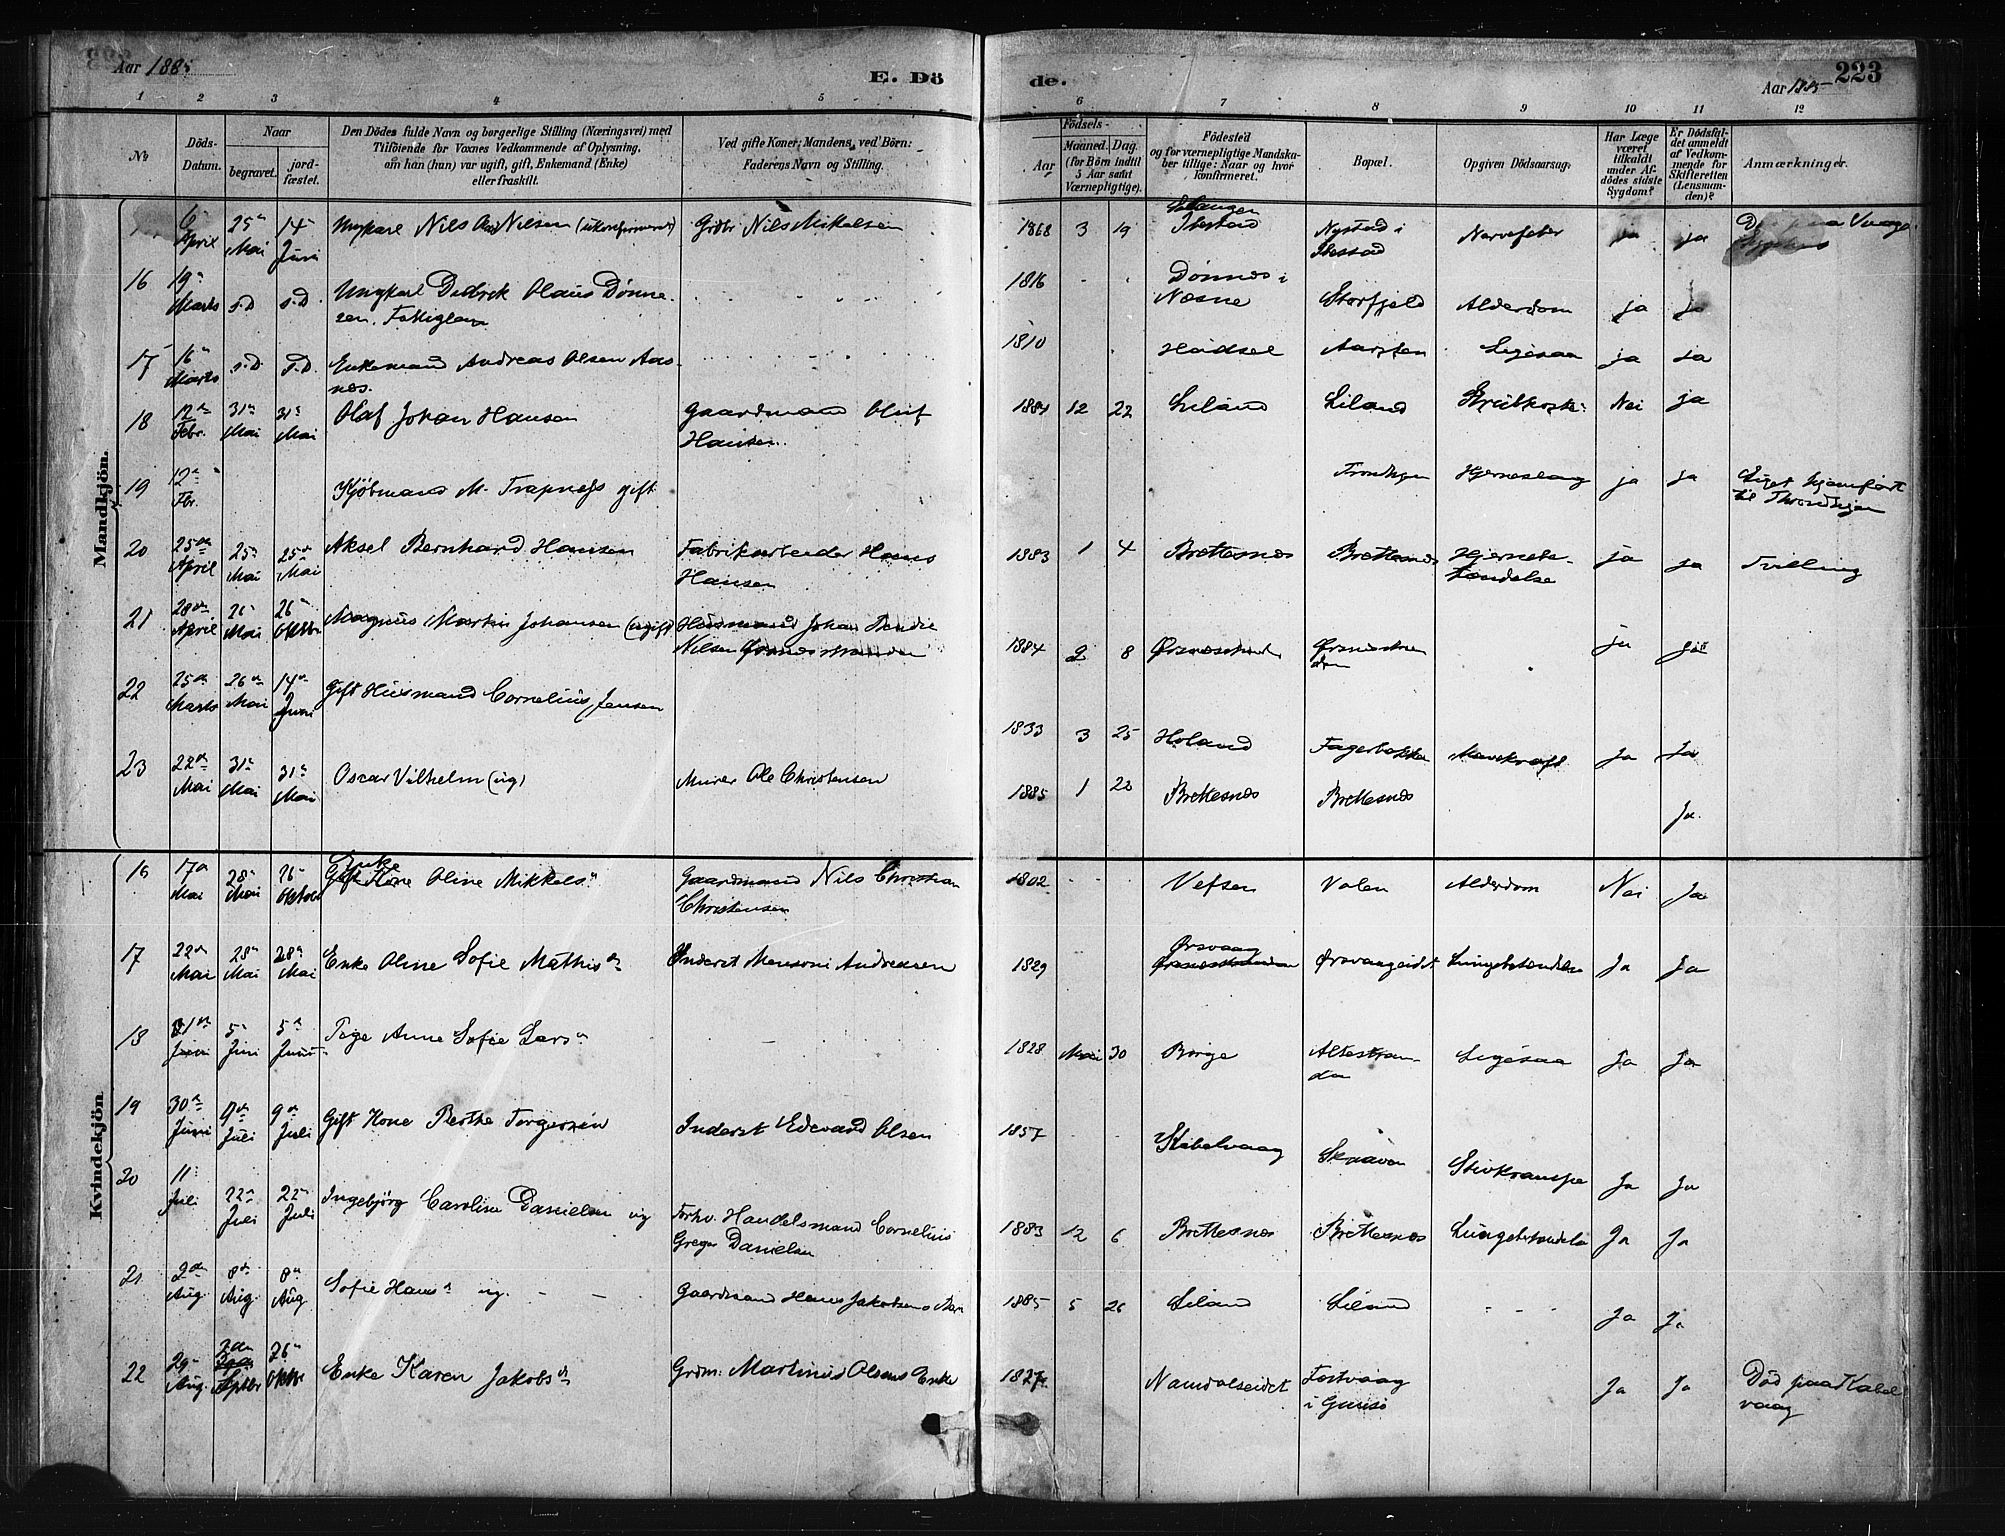 Aar 1885
E. Dö
de.
Aar 1885
223
1 2 3 4 5
6 7 8 9 10 11 12
No
Döds-
Datum.
Naar
begravet.
jord-
fæstet.
Den Dödes fulde Navn og borgerlige Stilling (Næringsvei) med
Tilföiende for Voxnes Vedkommende af Oplysning,
om han (hun) var ugift, gift, Enkemand (Enke)
eller fraskilt.
Ved gifte Koner; Mandens, ved Börn:
Faderens Navn og Stilling.
Födsels-
Aar
Maaned. Dag.
(for Börn indtil
5 Aar samt
Værnepligtige).
Födested
og for værnepligtige Mandska-
ber tillige: Naar og hvor
konfirmeret.
Bopæl.
Opgiven Dödsaarsag.
Har Læge
været
tilkaldt
under Af-
dödes sidste
Sygdom?
Er Dödsfal-
det anmeldt
af Vedkom-
mende for
Skifteretten
(Lensman-
den)?
Anmærkninger.
Mandkjön.
6 April 25 Mai 14 Juni Ungkarl Nils Nilsen Nils Mikalsen 1868 3 19 Ibestad Nystad i Ibestad Nervefeber ja ja
16 19 Marts s.D s.D. Ungkarl Didrik Olaus Dønne-
sen. Fattiglem 1816 Dønnes i
Næsne Storfjeld Alderdom ja ja
17 16 Marts s.D. s.D. Enkemand Andreas Olsen Aas-
næs. 1810 Hadsel Ligesaa ja ja
18 12 Febr. 31 Mai 31 Mai Olaf Johan Hansen Gaardmand Oluf
Hansen 1884 12 22 Liland Liland Nei ja
19 12 Fbr. Kjøbmand M. gift Hjerneslag ja ja Liget hjemført
til Throndhjem
20 25de April 25 Mai 25 Mai Aksel Bernhard Hansen Fabrikarbeider Hans
Hansen 1883 1 4 Brettesnæs Brettesnæs Hjernebe-
tændelse ja ja Tvilling
21 28de April 26 Mai 26 Oktbr Magnus Martin Johansen (ugift) Husmand Johan
Nilsen 1884 2 8 ja ja
22 25de Marts 26de Mai 14de Juni Gift Husmand Cornelius Jensen 1833 3 25 Holand Ja Ja
23 22de Mai 31 Mai 31 Mai Oscar Vilhelm (ug) Murer Ole Christensen 1885 1 Brettesnæs Brettesnæs Ja
Kvindekjön
16 17de Mai 28 Mai 26 Oktober Enke
Gift Kone Oline Mikkelsdr Gaardmand Nils Christian
Christensen 1802 Vefsen Valen Alderdom Nei Ja
17 22de Mai 28 Mai 28 Mai Enke Oline Sofie Mathisdr Inderst Andreasen 1829 Ørsvaag Ørsvaageidet Lungebetændelse Ja Ja
18 Juni 5 Juni 5 Juni Pige Anne Sofie Larsdr 1828 Mai 30 Borge Ligesaa Ja Ja
19 30 Juni 9de Juli 9de Juli Gift Kone Berthe Torgersen Inderst Edevard Olsen 1857 Skraaven Ja Ja
20 11 Juli 22de Juli 22 Juli Ingebjørg Caroline Danielsen ug Forhv. Handelsmand Cornelius
Greger Danielsen 1883 12 6 Brettesnæs Brettesnæs Lungebetændelse Ja Ja
21 2de Aug. 8de Aug. 8de Aug Sofie Hansdr ug. Gaardmand Hans Jakobsens 1885 5 26 Liland Liland Ja Ja
22 29 Aug. 2den Sptbr 26 Oktbr Enke Karen Jakobsdr Grdm. Martinus Olsens Enke 1827 Namdalseidet i Gimsø Ja Ja Død paa Kabel
vaag